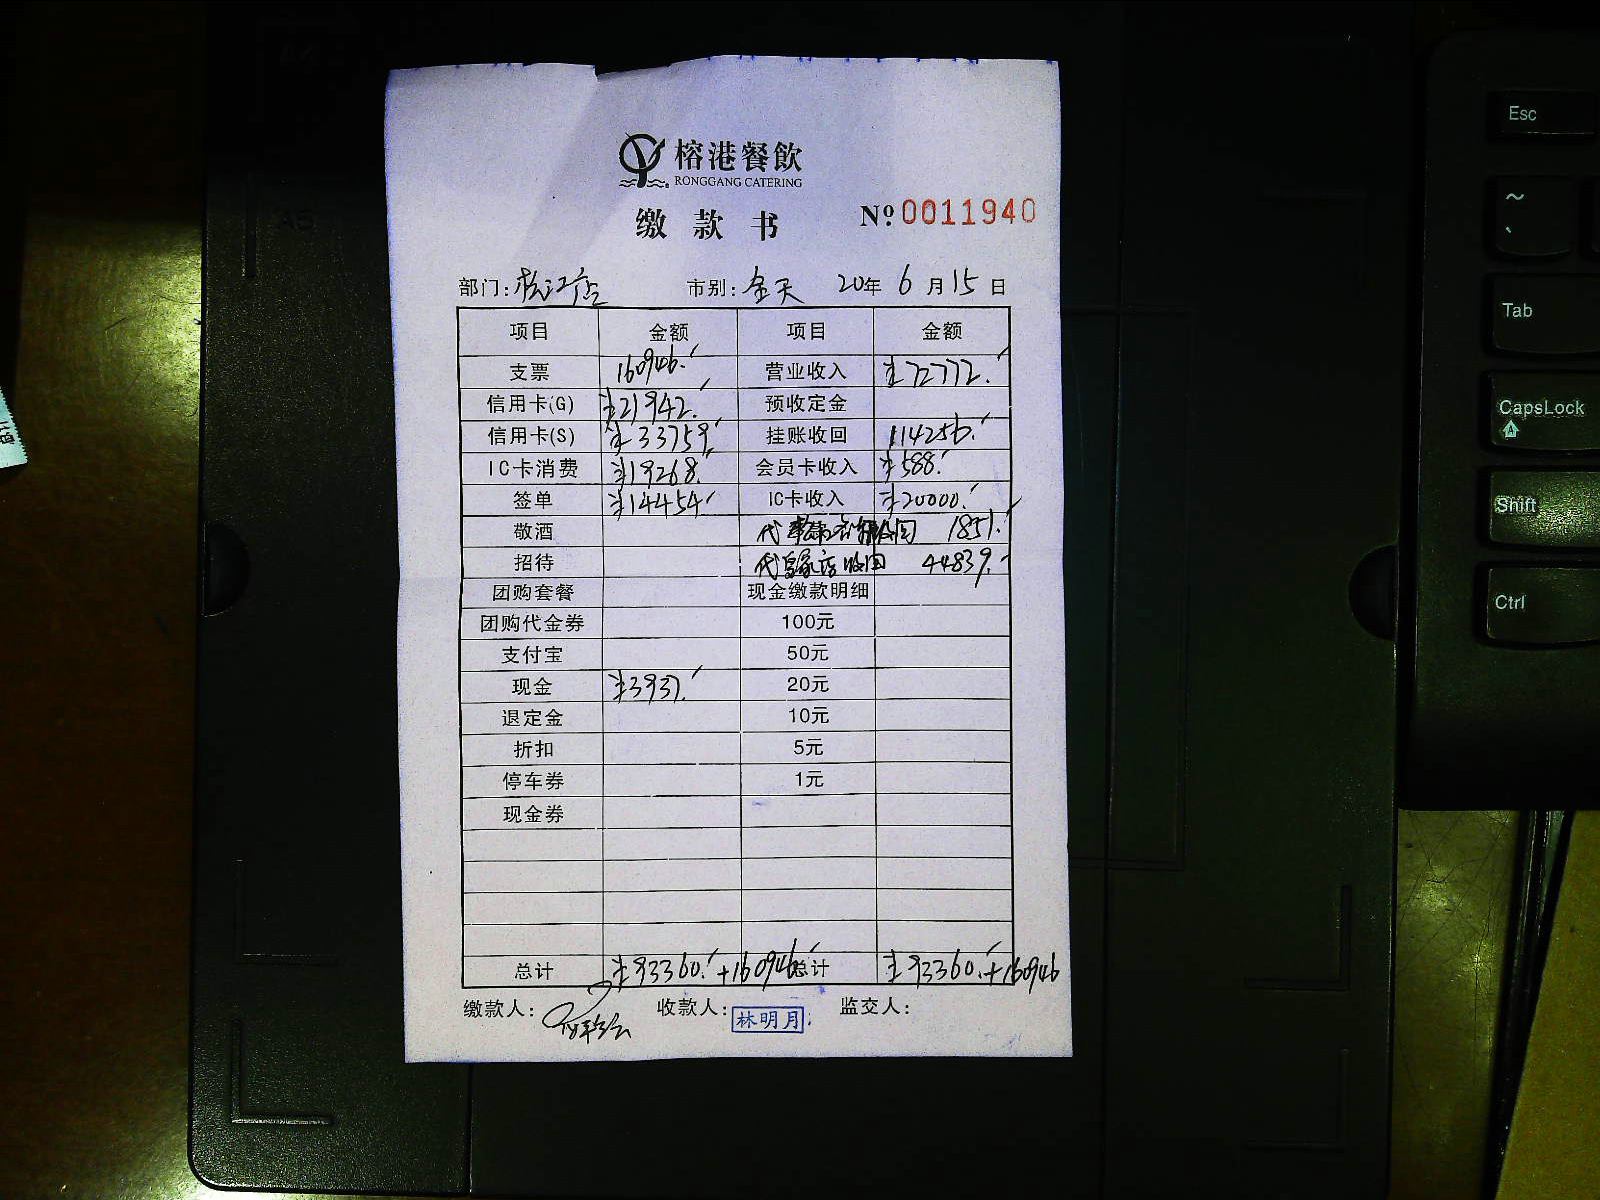 榕港餐飲
RONGGANG CATERING
缴款书 Nº 0011940
部门: 松江店 市别: 全天 20年 6月15日
项目 金额 项目 金额
支票 160946. 营业收入 ¥72772.
信用卡(G) ¥21942. 预收定金
信用卡(S) ¥33759. 挂账收回 114256.
IC卡消费 ¥19268. 会员卡收入 ¥588.
签单 ¥14454 IC卡收入 ¥20000.
敬酒 代 1851.
招待 代皇家店收回 44839.
团购套餐 现金缴款明细
团购代金券 100元
支付宝 50元
现金 ¥3937. 20元
退定金 10元
折扣 5元
停车券 1元
现金券
总计 ¥93360.+160946 总计 ¥93360.+160946
缴款人: 收款人: 林明月 监交人:
Esc
~
Tab
CapsLock
Shift
Ctrl
A5